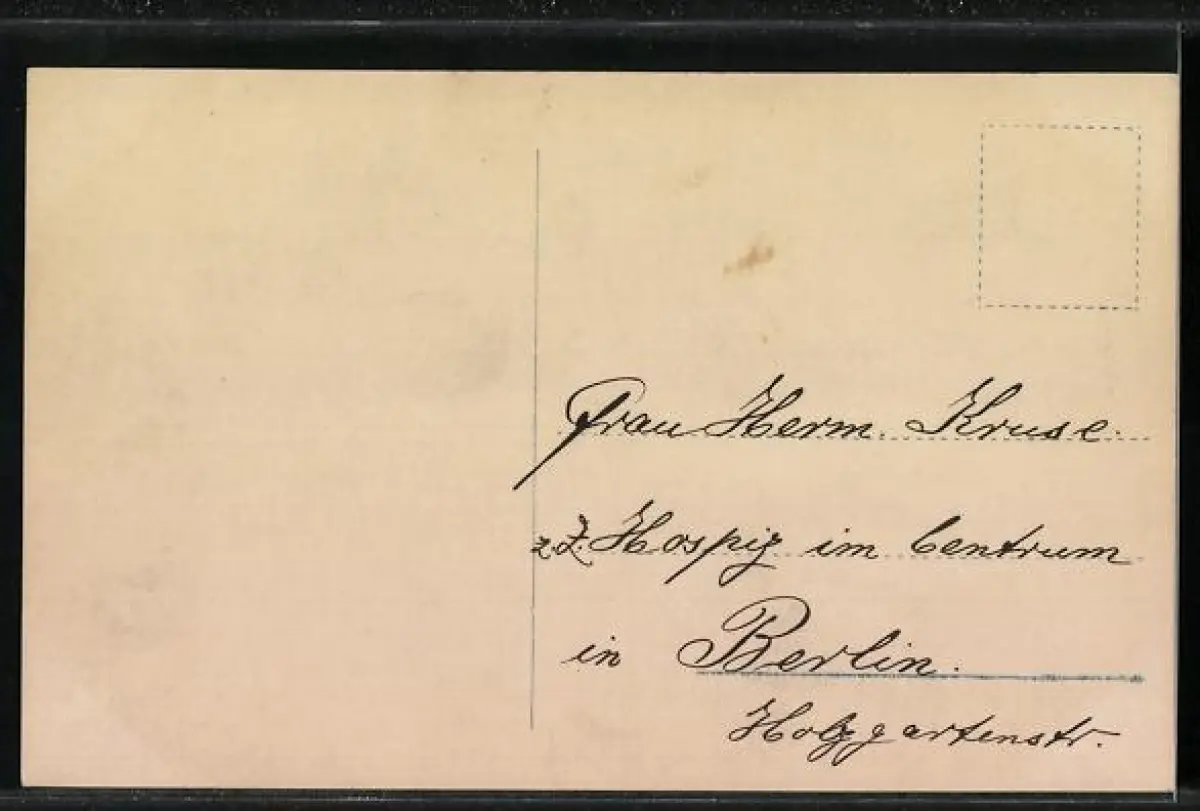 Frau Herm. Kruse.
z. Z. Hospiz im Centrum
in Berlin.
Holzgartenstr.